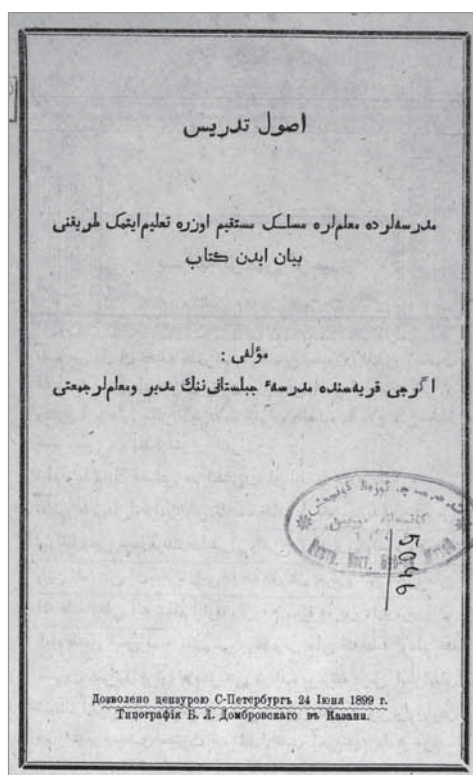 اصول تدريس
مدرسه‌لرده معلم‌لره مسلك مستقيم اوزره تعليم ايتمك طريقنى
بيان ايدن كتاب
مؤلفى :
اگرجى قريه‌سنده مدرسهٔ جبلستانى‌ننك مدير ومعلم‌لر جمعتى
5046
Дозволено цензурою С-Петербургъ 24 Іюня 1899 г.
Типографія Б. Л. Домбровскаго въ Казани.